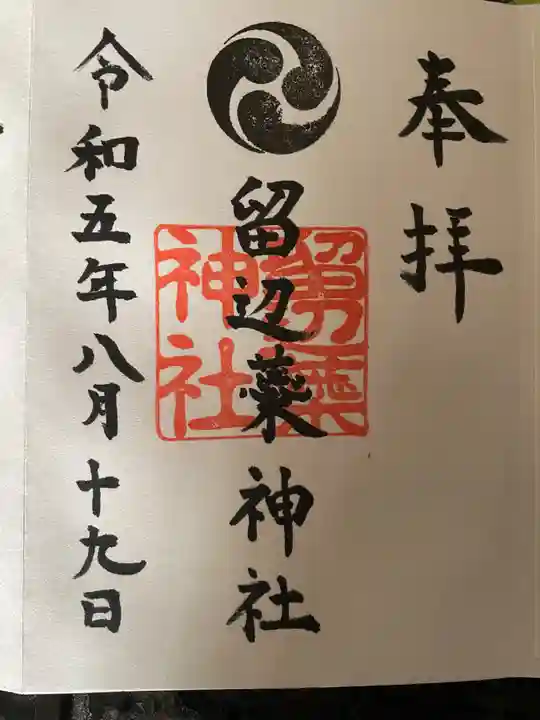 奉拝
留辺蘂神社
令和五年八月十九日
神社